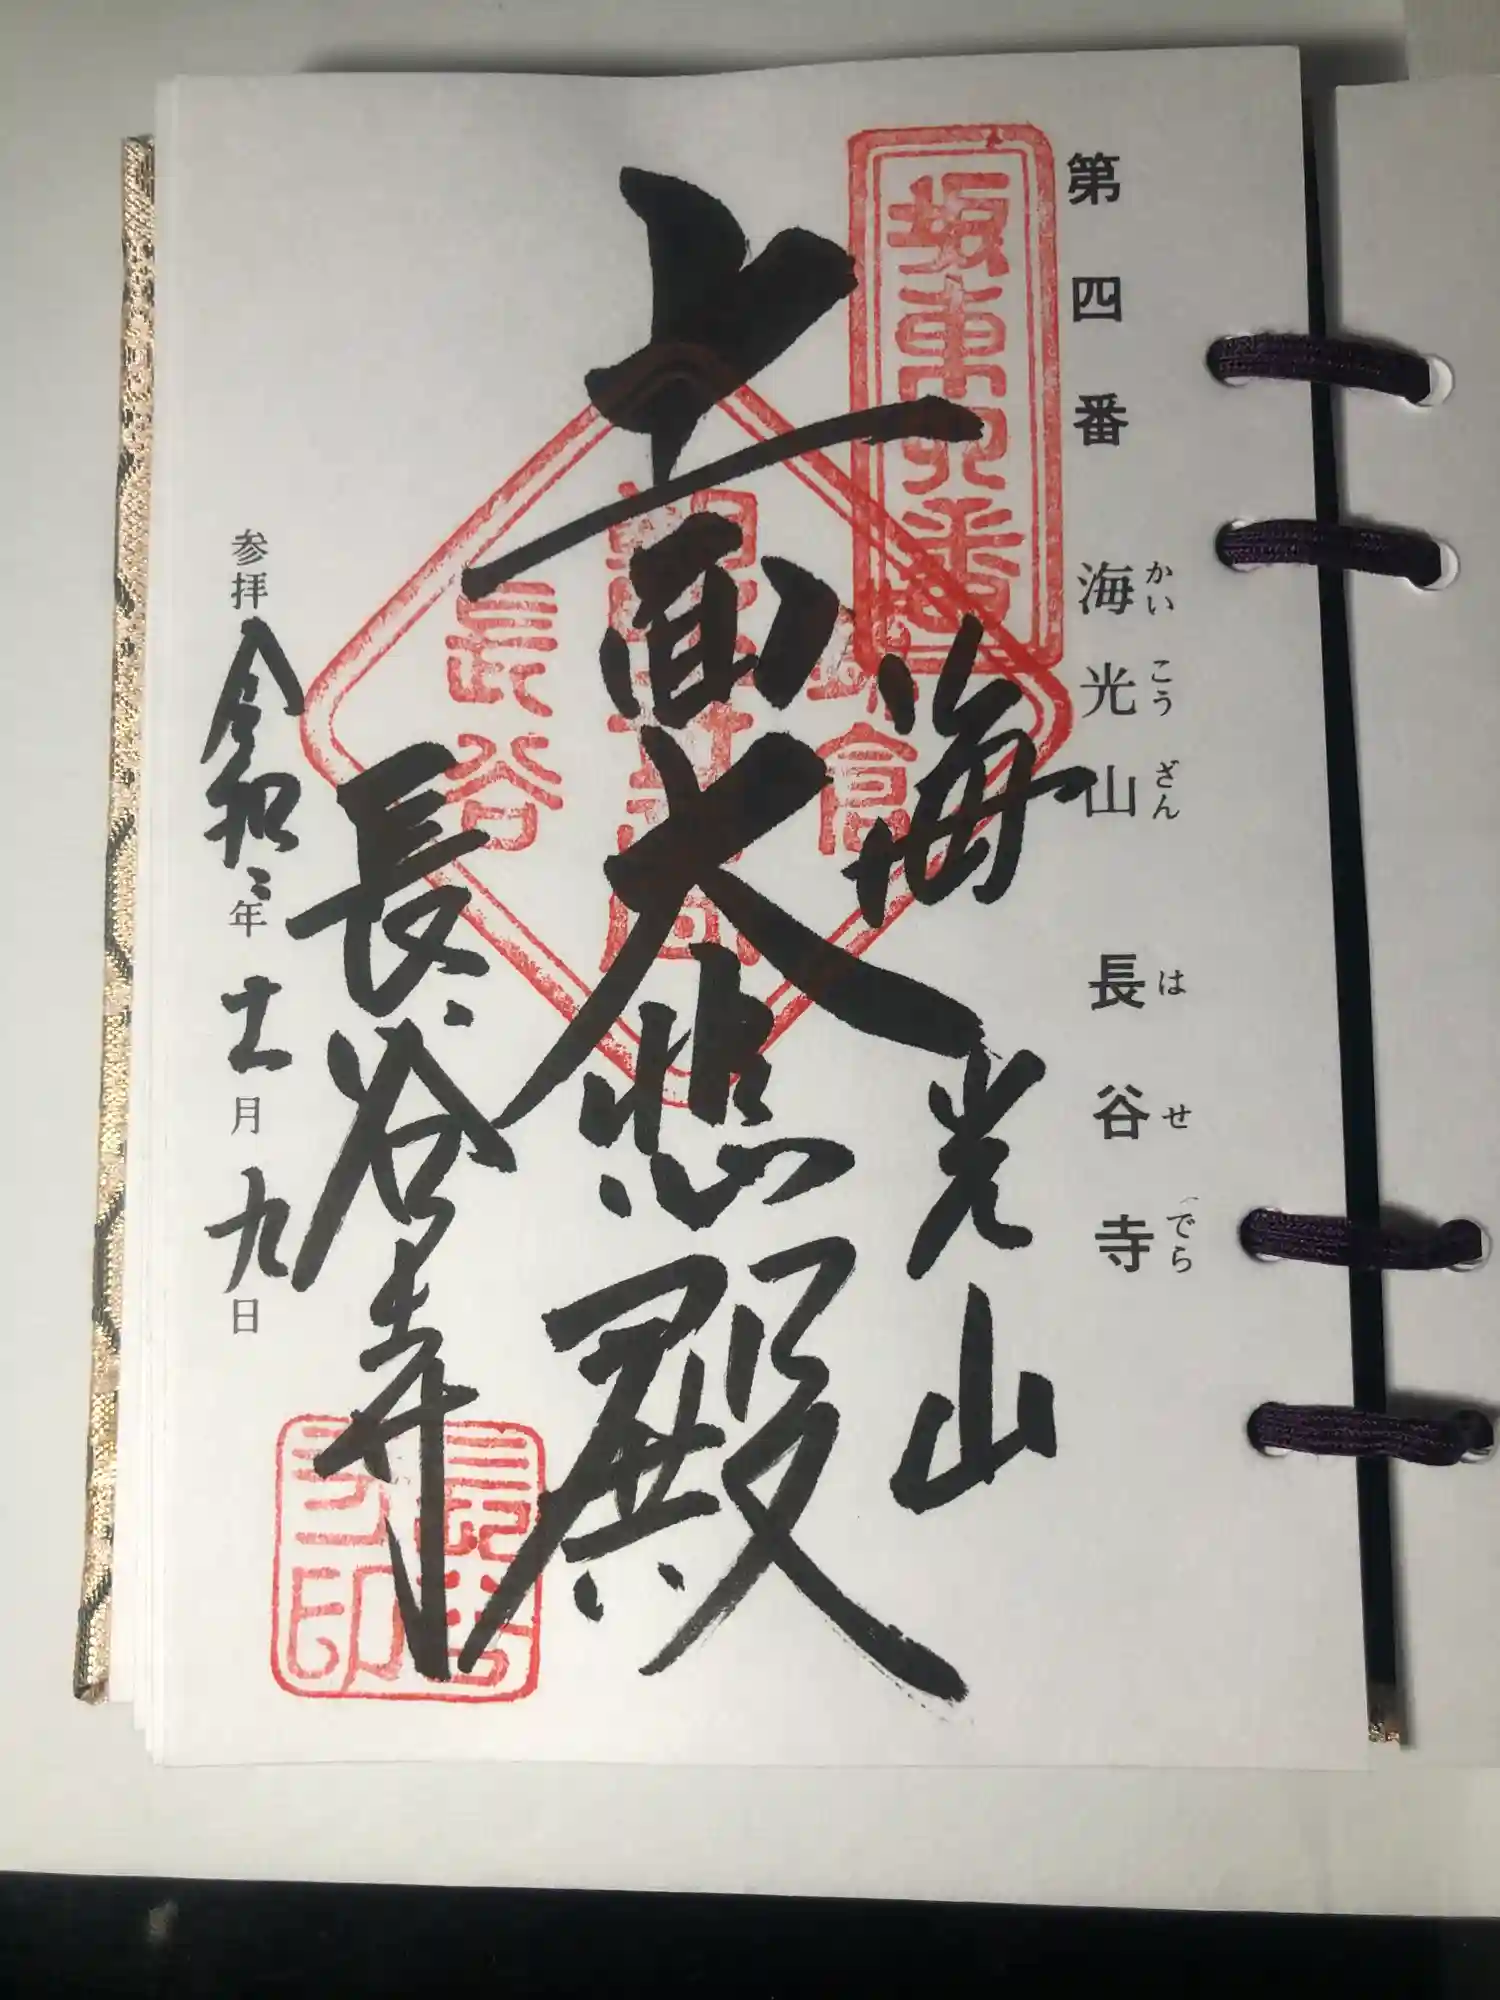 第四番 海光山 長谷寺
かいこうざん はせでら
坂東四番
海光山
十一面大悲殿
鎌倉
長谷
長谷寺
参拝 令和二年 十一月 九日